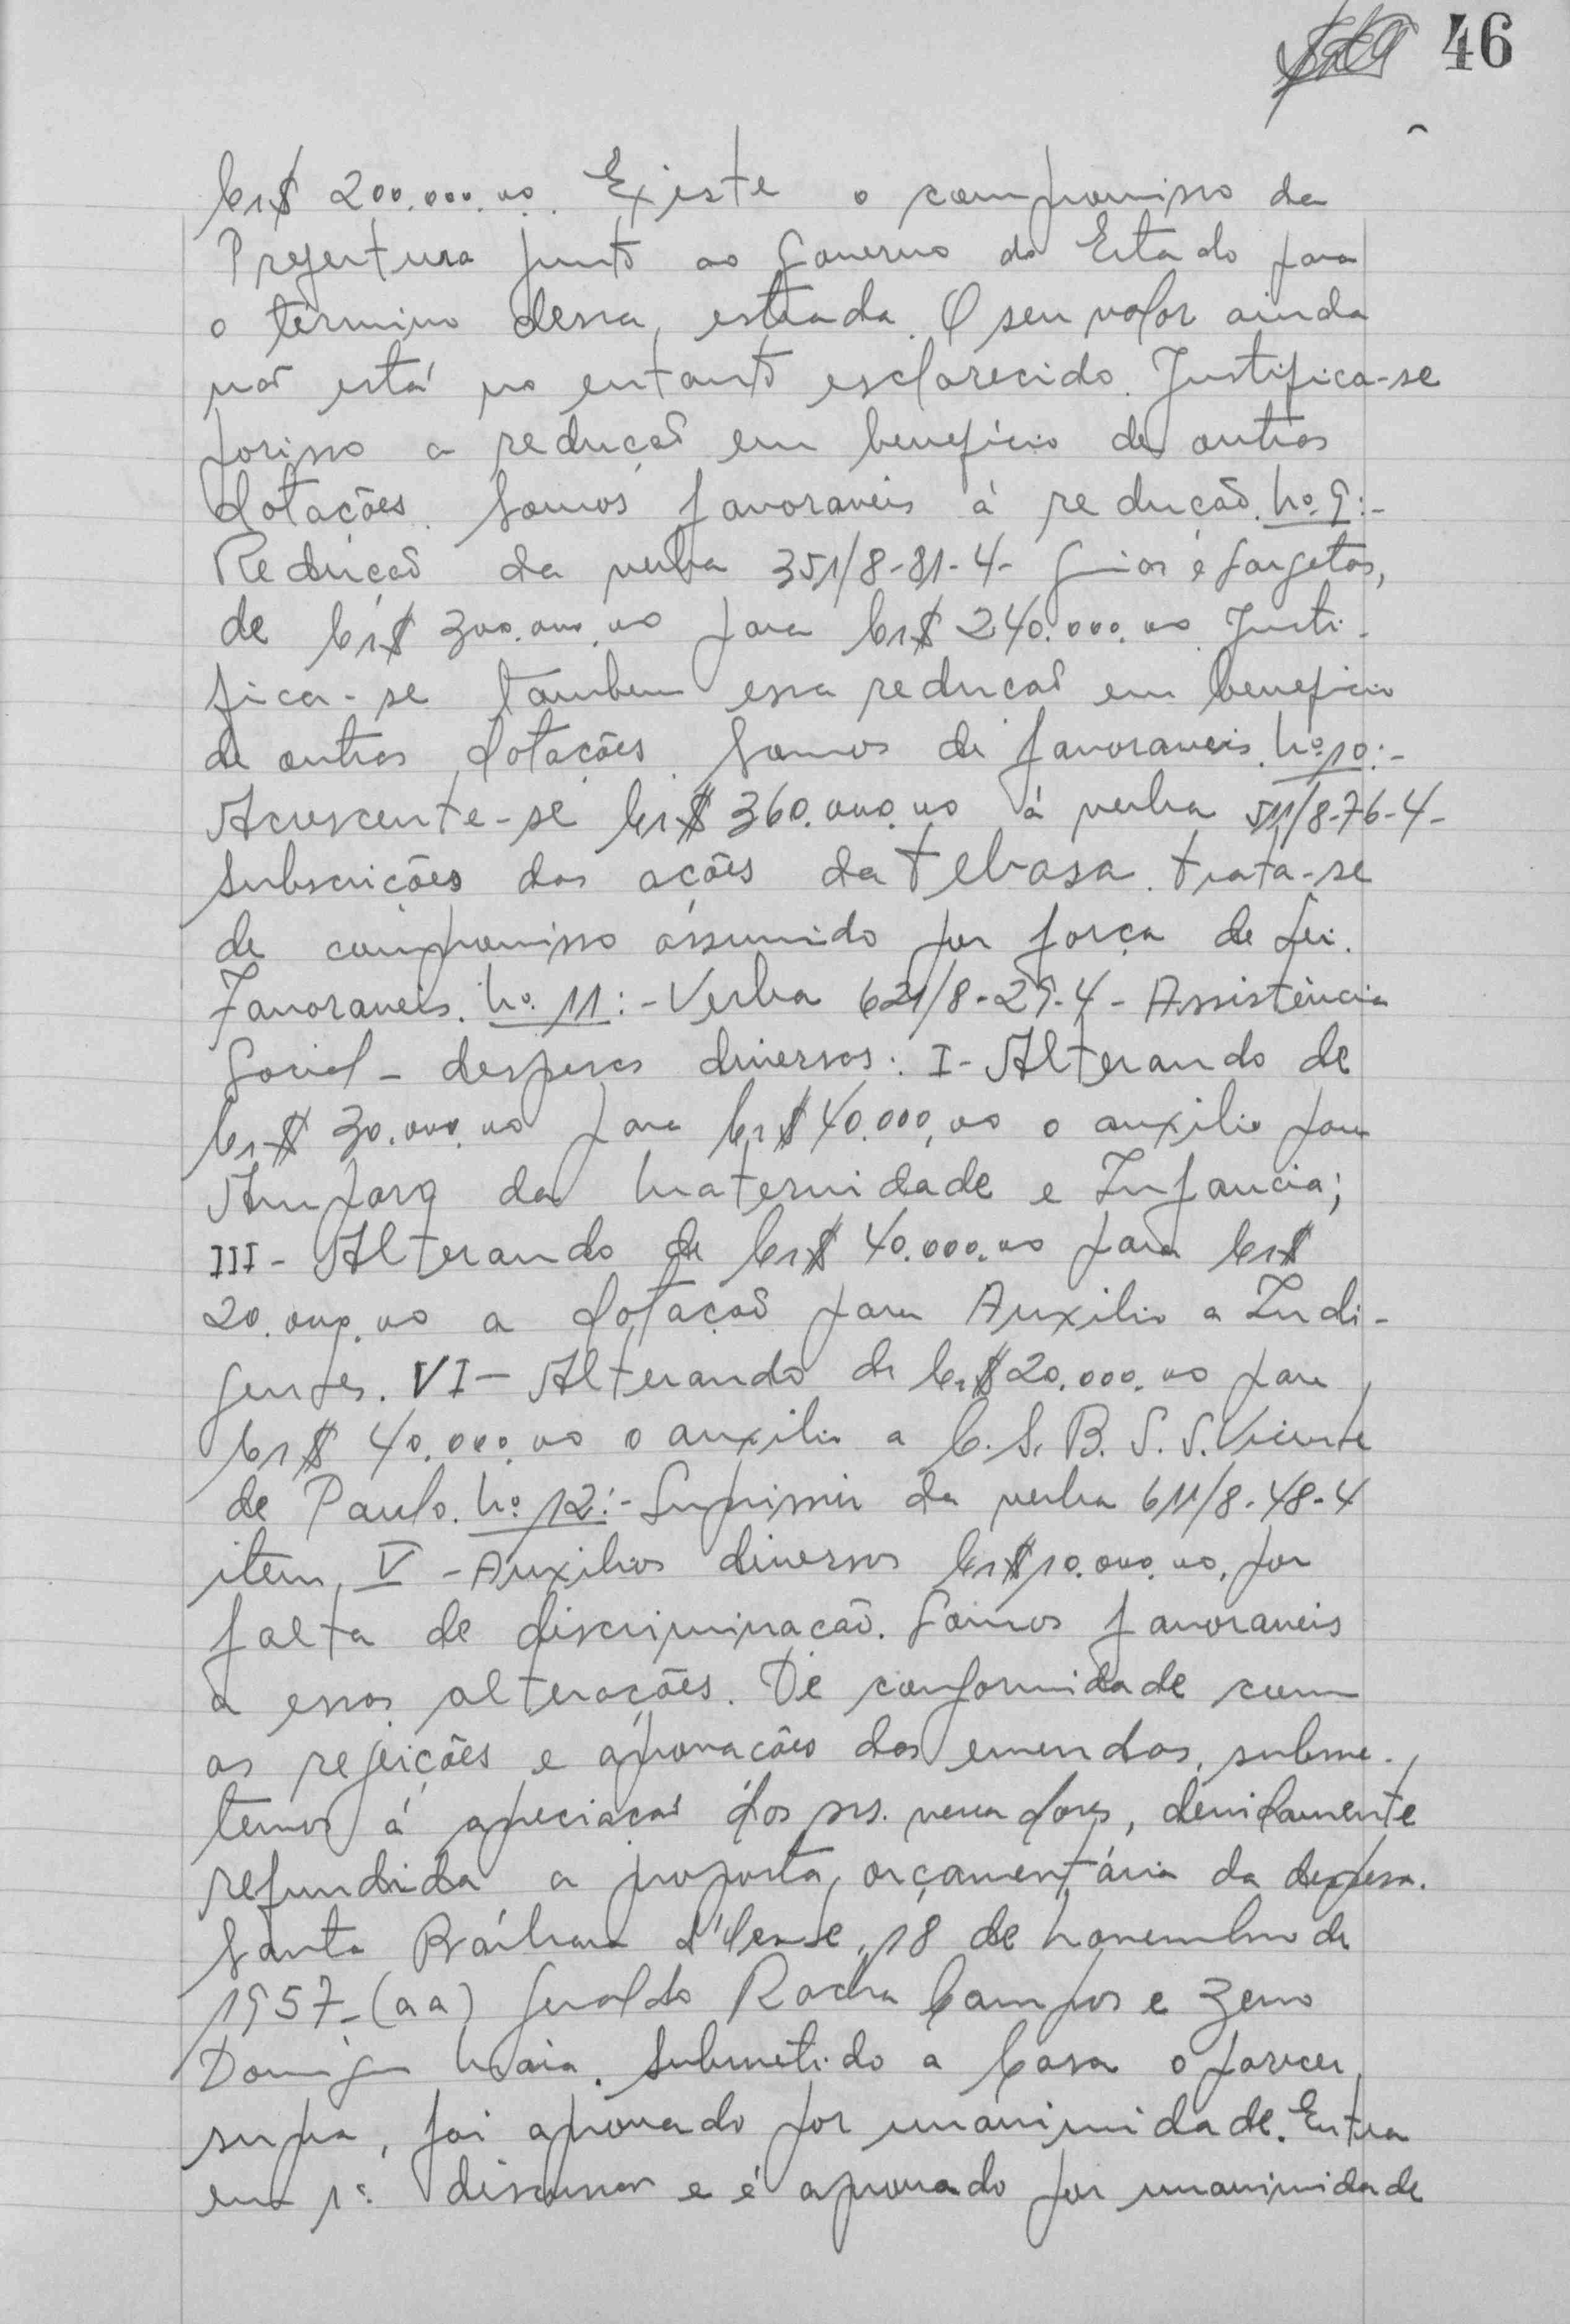 46
Cr$ 200.000,00. Existe o compromisso da
Prefeitura junto ao Governo do Estado para
o término dessa estrada. O seu valor ainda
não está no entanto esclarecido. Justifica-se
porisso a redução em benefício de outras
dotações. Somos favoraveis á redução. Nº 9:-
Redução da verba 351/8-81-4- Guias e Sargetas,
de Cr$ 300.000,00 para Cr$ 240.000,00. Justi-
fica-se tambem essa redução em beneficio
de outras dotações. Somos de favoraveis. Nº 10:-
Acrescente-se Cr$ 360.000,00 á verba 511/8-76-4-
Subscrições das ações da Tebasa. Trata-se
de compromisso assumido por força de Lei.
Favoraveis. Nº 11:- Verba 621/8-29-4- Assistência
Social - despesas diversas: I- Alterando de
Cr$ 30.000,00 para Cr$ 40.000,00 o auxilio para
Amparo da Maternidade e Infancia;
III- Alterando de Cr$ 40.000,00 para Cr$
20.000,00 a dotação para Auxilio a Indi-
gentes. VI- Alterando de Cr$ 20.000,00 para
Cr$ 40.000,00 o auxilio a C. S. B. S. S. Vicente
de Paulo. Nº 12:- Suprimir da verba 611/8-48-4
item V - Auxilios diversos Cr$ 10.000,00, por
falta de discriminação. Somos favoraveis
a essas alterações. De conformidade com
as rejeições e aprovações das emendas, subme-
temos á apreciação dos srs. vereadores, devidamente
refundida a proposta orçamentária da despesa.
Santa Bárbara d'Oeste, 18 de novembro de
1957-(aa) Geraldo Rocha Campos e Zeno
Domingos Maia. Submetido a Casa o parecer
supra, foi aprovado por unanimidade. Entra
em 1ª discussão e é aprovado por unanimidade